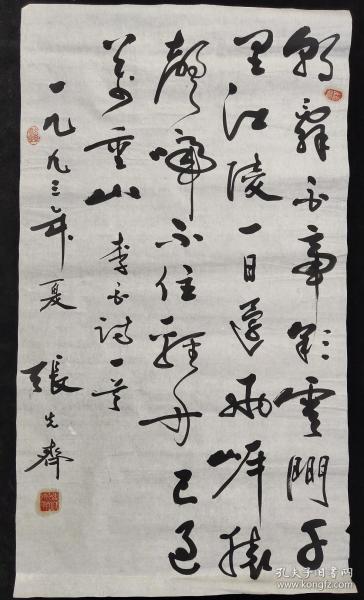 朝辞白帝彩云间千
里江陵一日還兩岸猿
聲啼不住輕舟已過
万重山 李白詩一首
一九九三年夏 張先齊
孔夫子旧书网
www.kongfz.com